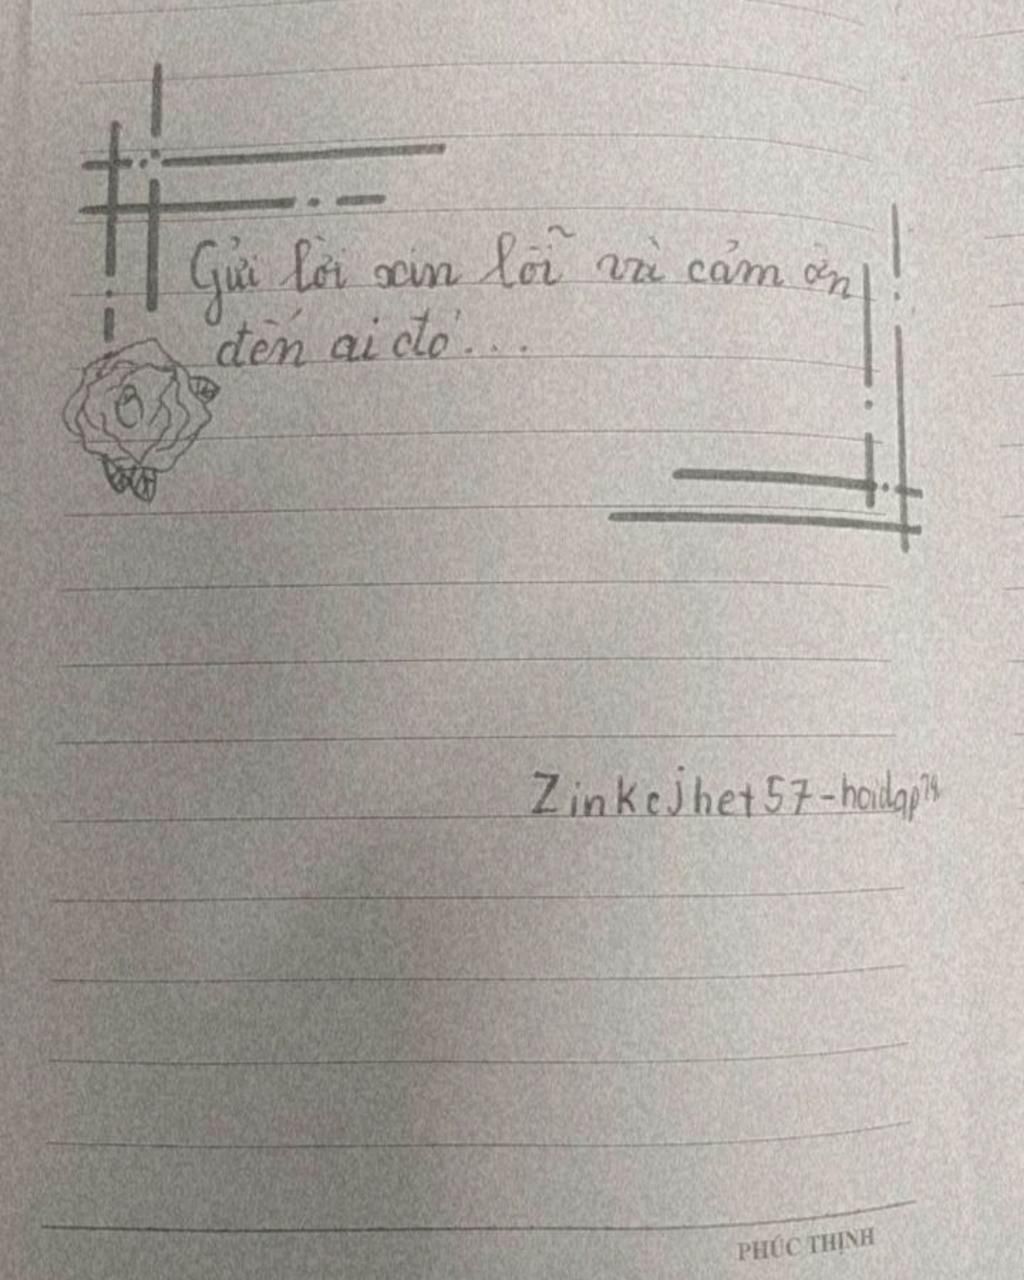 Gửi lời xin lỗi vì cảm ơn
đến ai đó...
Zinkcjhet57-hoidap
PHÚC THỊNH